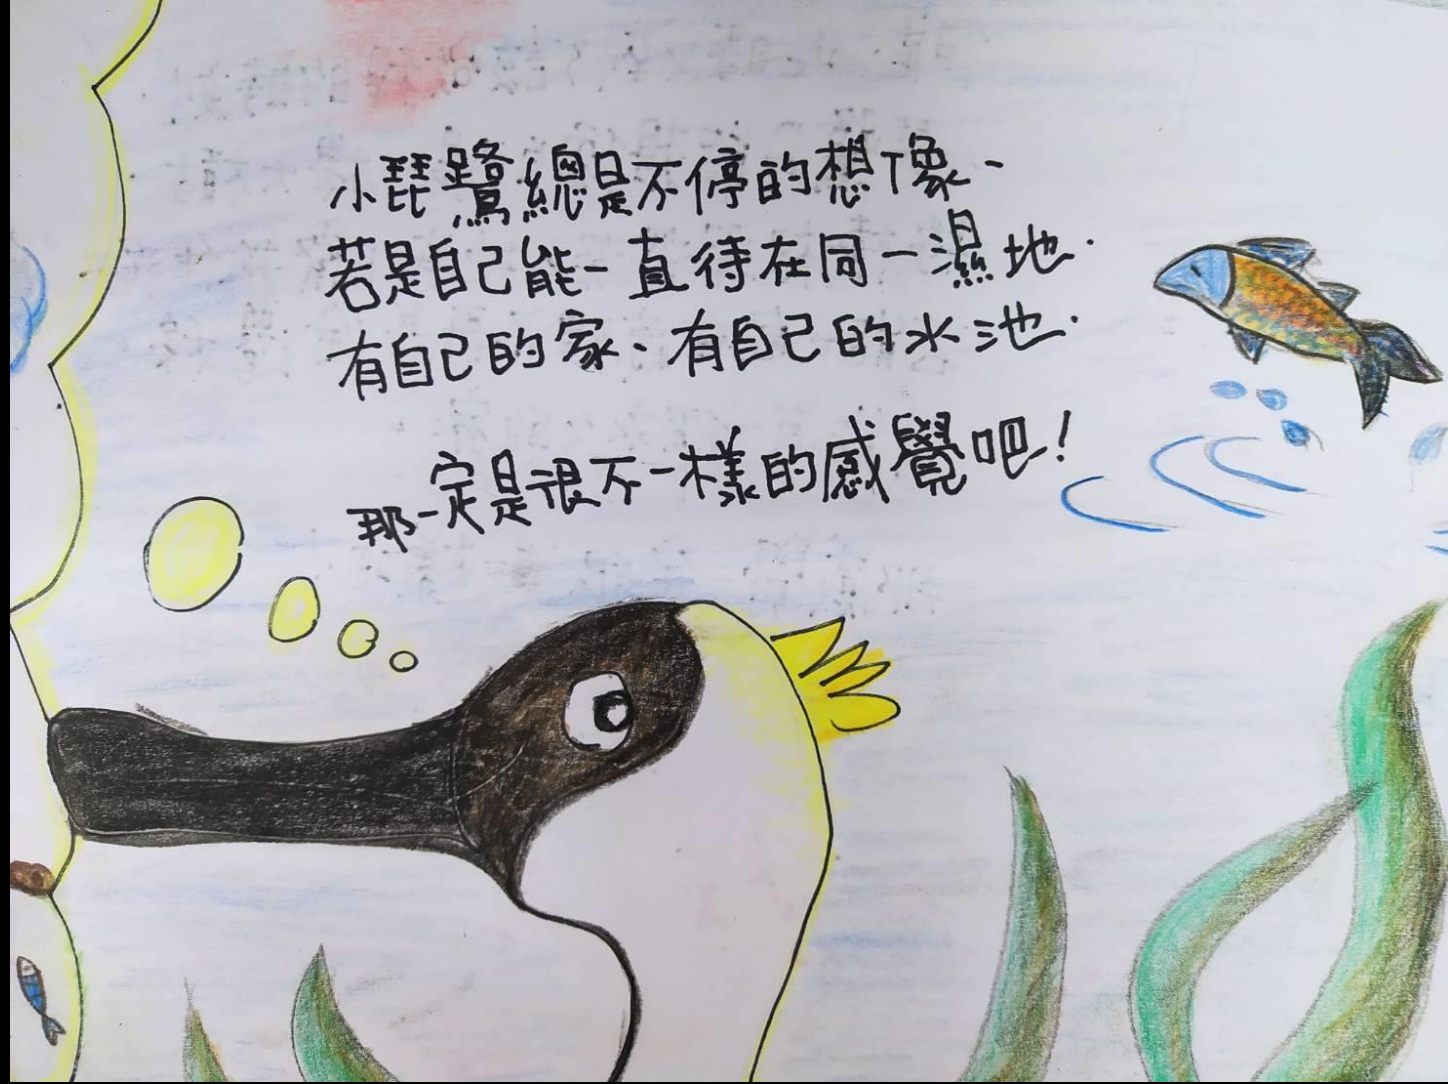 小琵鷺總是不停的想像、
若是自己能一直待在同一濕地.
有自己的家、有自己的水池.
那一定是很不一樣的感覺吧!